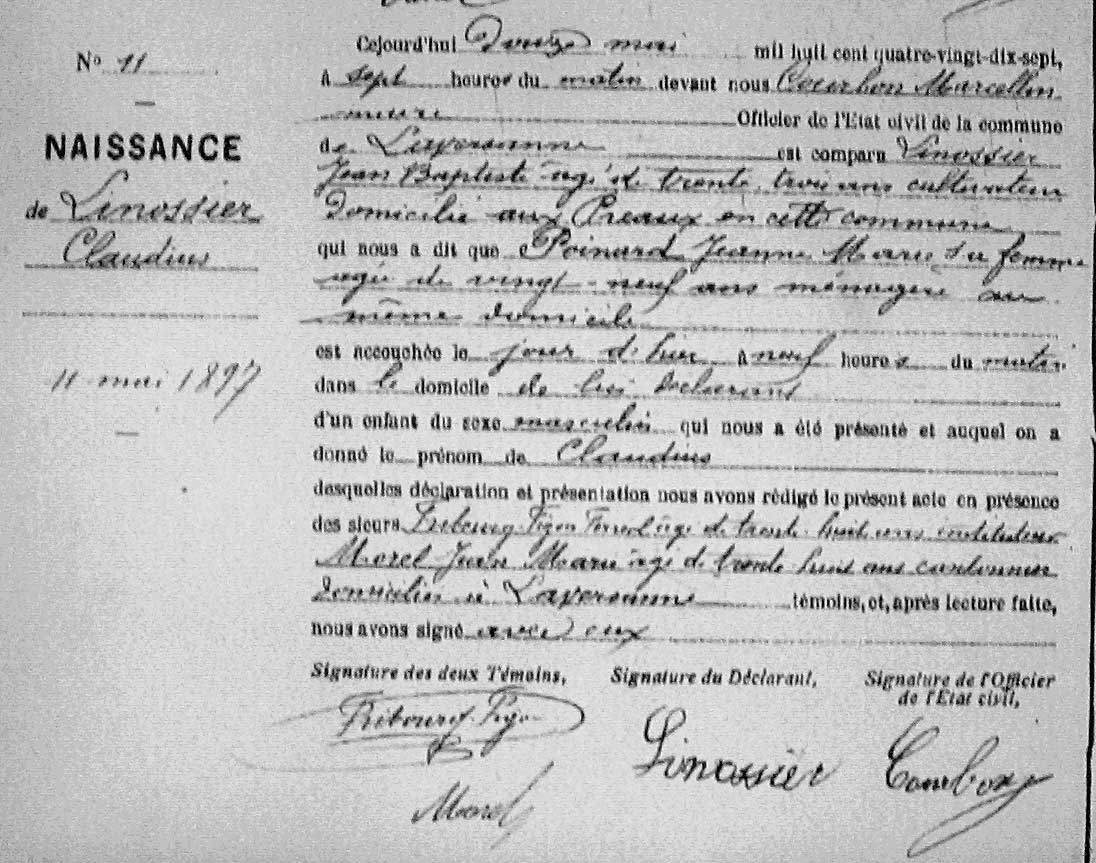 Nº 11
NAISSANCE
de Linossier
Claudius
11 mai 1897
Cejourd'hui Douze mai mil huit cent quatre-vingt-dix-sept,
à sept heures du matin devant nous Courbon Marcellin
maire Officier de l'Etat civil de la commune
de Laversanne est comparu Linossier
Jean Baptiste agé de trente trois ans cultivateur
Domicilié aux Preaux en cette commune
qui nous a dit que Poinard Jeanne Marie sa femme
agée de vingt-neuf ans ménagère au
même domicile
est accouchée le jour d'hier à neuf heures du matin
dans le domicile de lui declarant
d'un enfant du sexe masculin qui nous a été présenté et auquel on a
donné le prénom de Claudius
desquelles déclaration et présentation nous avons rédigé le présent acte en présence
des sieurs agé de trente huit ans instituteur
Morel Jean Marie agé de trente huit ans cantonnier
Domiciliés à Laversanne témoins, et, après lecture faite,
nous avons signé avec eux
Signature des deux Témoins, Signature du Déclarant, Signature de l'Officier
de l'Etat civil,
Linossier Courbon
Morel